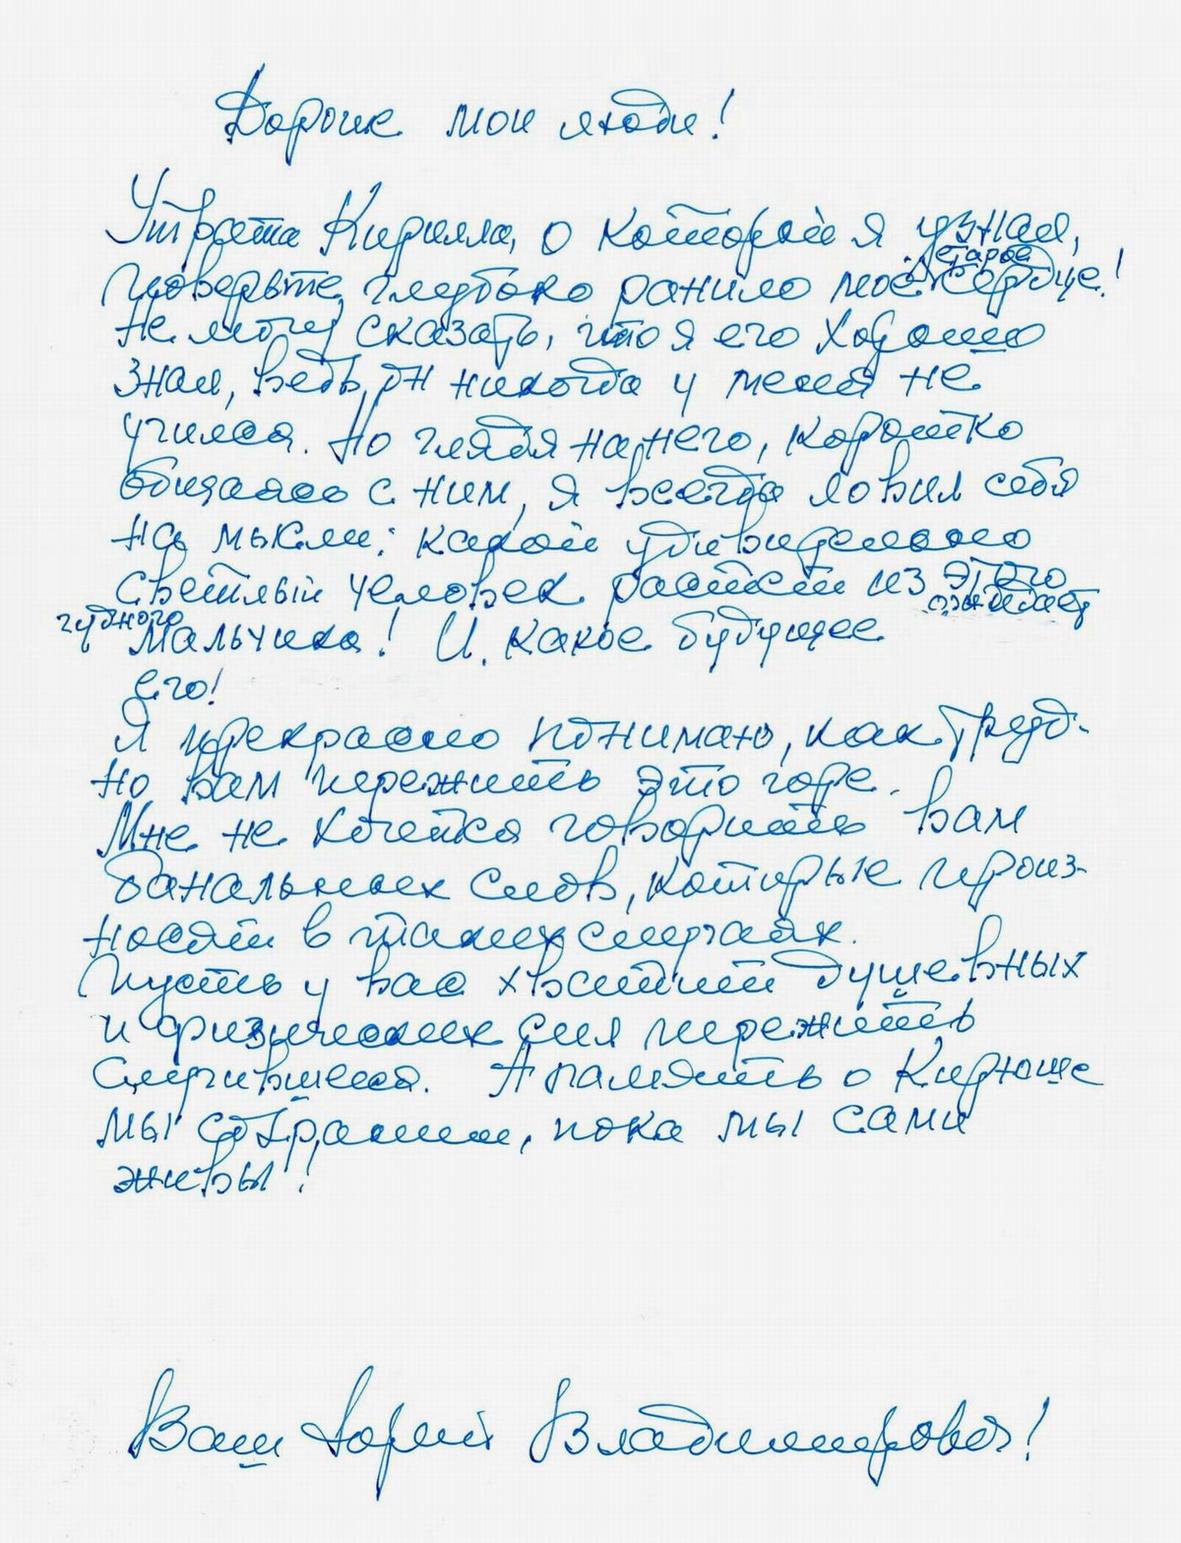 Дорогие мои люди!
Утрата Кирилла, о которой я узнал,
поверьте, глубоко ранило моё старое сердце!
Не могу сказать, что я его хорошо
знал, ведь он никогда у меня не
учился. Но глядя на него, коротко
общаясь с ним, я всегда ловил себя
на мысли: какой удивительно
светлый человек растет из этого
чудного мальчика! И какое будущее ожидает
его!
Я прекрасно понимаю, как труд-
но вам пережить это горе.
Мне не хочется говорить вам
банальных слов, которые произ-
носят в таких случаях.
Пусть у вас хватит душевных
и физических сил пережить
случившееся. А память о Кирюше
мы сохраним, пока мы сами
живы!
Ваш Юрий Владимирович!